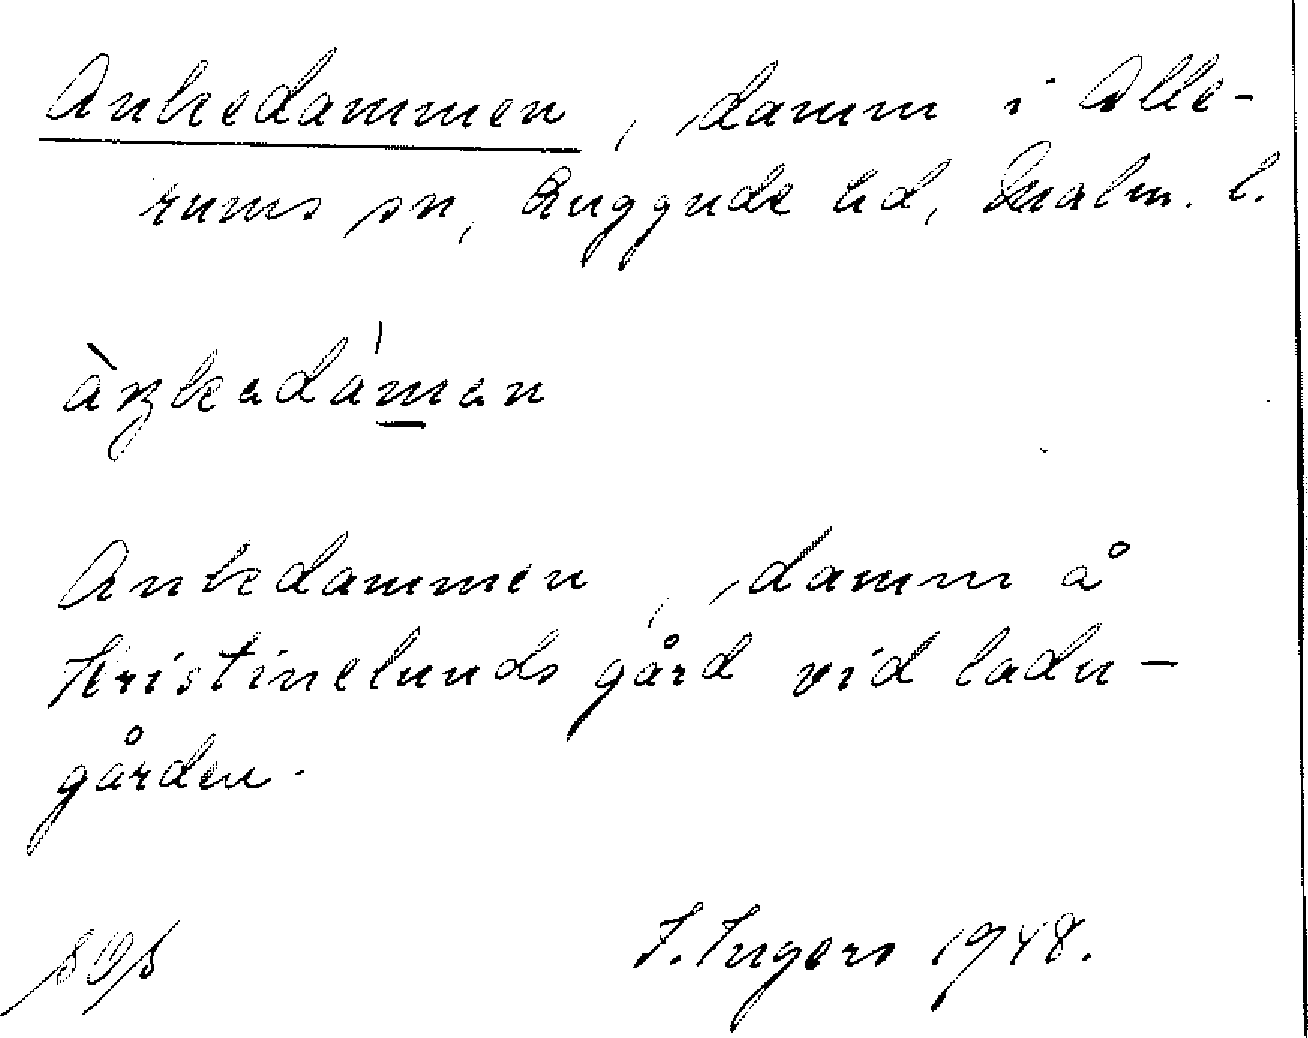 Ankedammen, damm i Alle-
rums sn, Luggude hd, Malm. l.
àŋkadámən
Ankedammen, damm å
Kristinelunds gård vid ladu-
gården.
I. Ingers 1948.